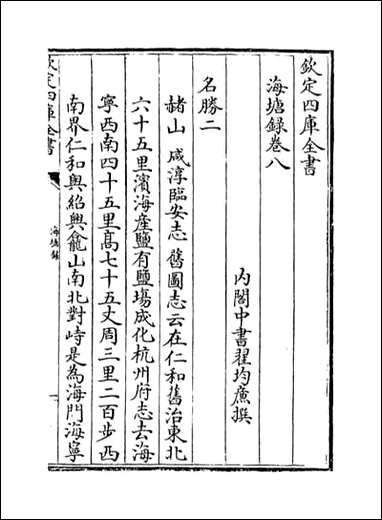 欽定四庫全書
海塘録卷八
内閣中書翟均亷撰
名勝二
赭山 咸淳臨安志舊圖志云在仁和舊治東北
六十五里濱海産鹽有鹽塲成化杭州府志去海
寧西南四十五里髙七十五丈周三里二百步西
南界仁和與紹興龕山南北對峙是為海門海寧
欽定四庫全書
海塘録